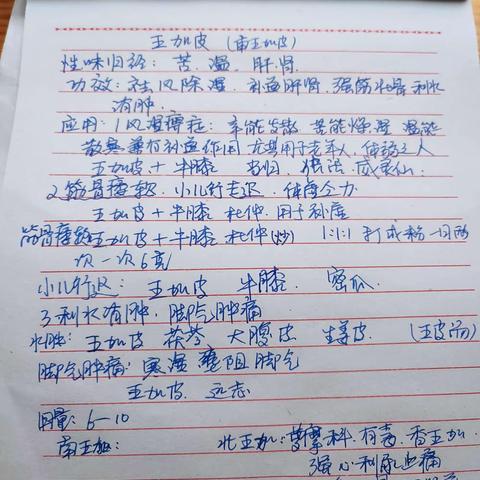 五加皮 (南五加皮)
性味归经: 苦. 温. 肝. 肾.
功效: 祛风除湿. 补益肝肾. 强筋壮骨 利水
消肿.
应用: 1 风湿痹症: 辛能发散 苦能燥湿 温能
散寒 兼有补益作用 尤其用于老年人, 体弱之人
五加皮 + 牛膝 当归. 独活. 威灵仙.
2 筋骨痿软. 小儿行走迟. 体虚乏力
五加皮 + 牛膝 杜仲. 用于
筋骨痿软 五加皮 + 牛膝 杜仲(炒) 1:1:1 打成粉 一日两
次 一次6克
小儿行迟: 五加皮 牛膝. 木瓜.
3 利水消肿. 脚气肿痛
水肿: 五加皮 茯苓 大腹皮 生姜皮. (五皮
脚气肿痛: 寒湿壅阻脚气
五加皮. 远志
用量: 6-10
南五加: 北五加: 萝摩科. 有毒. 香五加.
强心利尿止痛